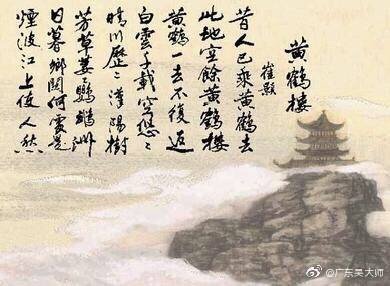 黄鹤楼
崔颢
昔人已乘黄鹤去
此地空餘黄鹤楼
黄鹤一去不復返
白雲千載空悠悠
晴川歷歷漢陽樹
芳草萋萋鹦鹉洲
日暮鄉關何處是
煙波江上使人愁
@广东吴大师